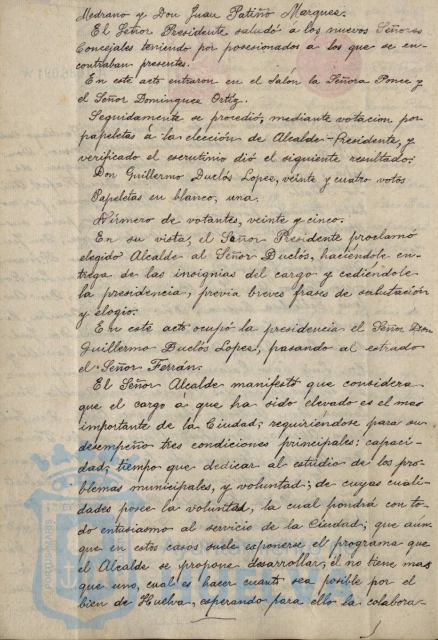 Medrano y Don Juan Patiño Marquez.
El Señor Presidente saludó a los nuevos Señores
Concejales teniendo por posesionados a los que se en-
contraban presentes.
En este acto entraron en el Salon la Señora Ponce y
el Señor Dominguez Ortiz.
Seguidamente se procedió, mediante votacion por
papeletas á la elección de Alcalde-Presidente, y
verificado el escrutinio dió el siguiente resultado:
Don Guillermo Duclós Lopez, veinte y cuatro votos
Papeletas en blanco, una.
Número de votantes, veinte y cinco.
En su vista, el Señor Presidente proclamó
elegido Alcalde al Señor Duclós, haciéndole en-
trega de las insignias del cargo y cediendole
la presidencia, previa breves frases de salutación
y elogio.
En este acto ocupó la presidencia el Señor Don
Guillermo Duclós Lopez, pasando al estrado
el Señor Ferrán.
El Señor Alcalde manifestó que considera
que el cargo á que ha sido elevado es el mas
importante de la Ciudad; requiriéndose para su
desempeño tres condiciones principales: capaci-
dad, tiempo que dedicar al estudio de los pro-
blemas municipales, y voluntad; de cuyas cuali-
dades posee la voluntad, la cual pondrá con to-
do entusiasmo al servicio de la Ciudad; que aun-
que en estos casos suele exponerse el programa que
el Alcalde se propone desarrollar, él no tiene mas
que uno, cual es hacer cuanto sea posible por el
bien de Huelva, esperando para ello la colabora-